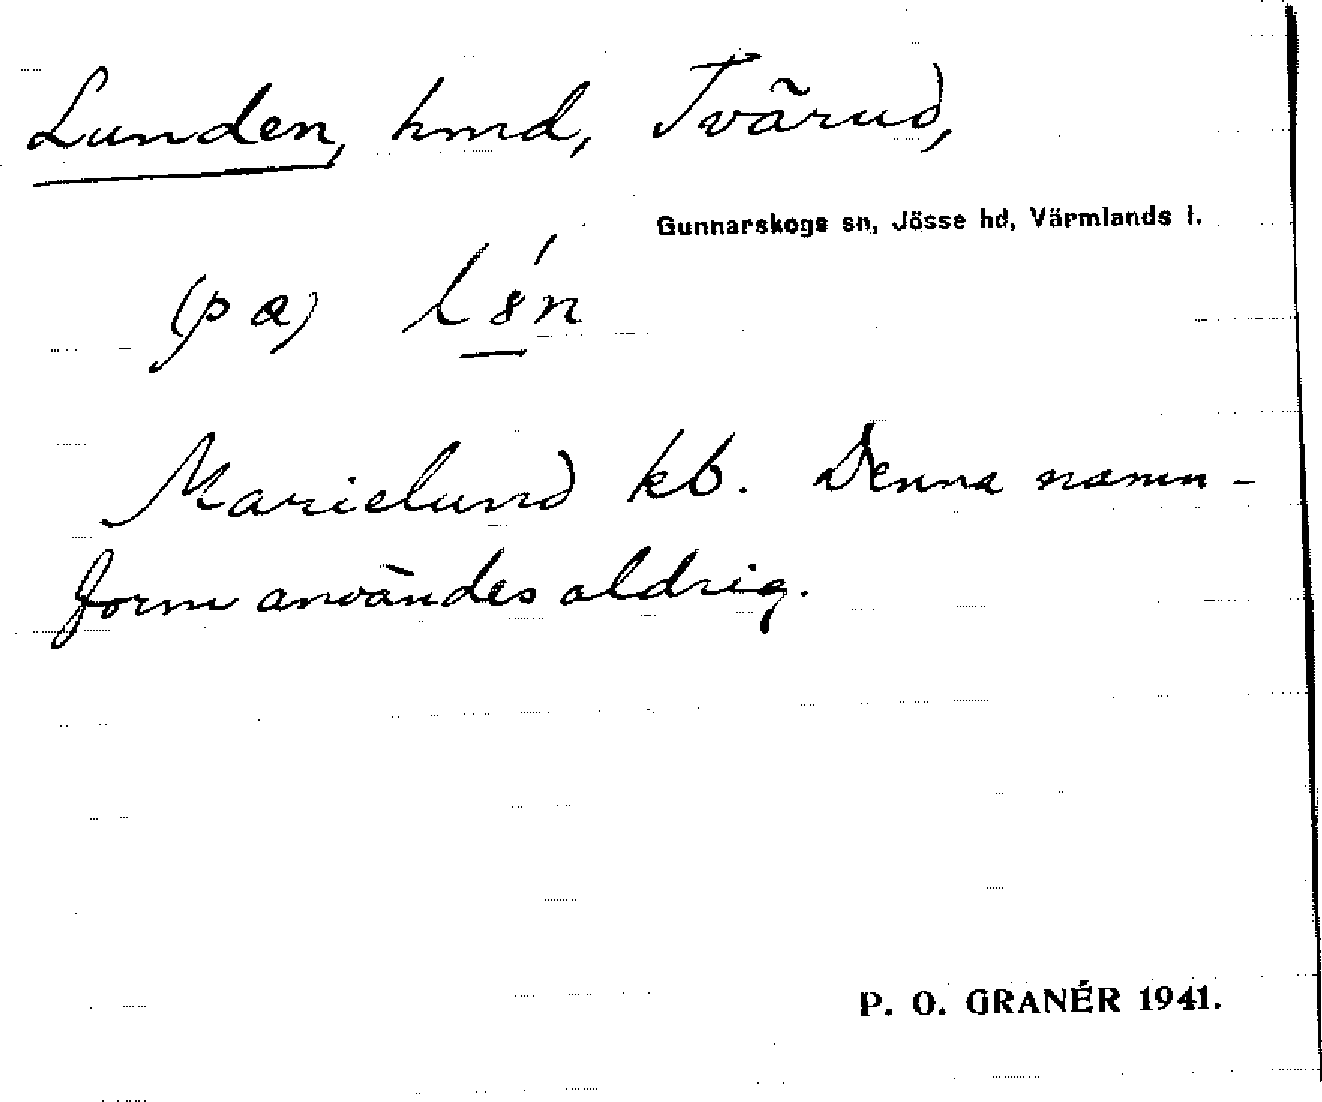 Lunden, hmd, Tvärud,
Gunnarskogs sn, Jösse hd, Värmlands l.
(på)
Marielund kb. Denna namn-
form användes aldrig.
P. O. GRANÉR 1941.